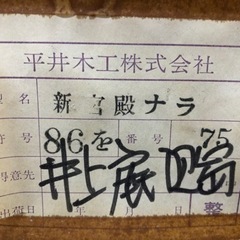 平井木工株式会社
名 新宮殿ナラ
号 86を 番号 75
得意先 井上家
出荷日 年 月 整